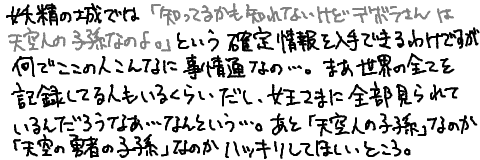 妖精の城では「知ってるかも知れないけどデボラさんは
天空人の子孫なのよ。」という確定情報を入手できるわけですが
何でここの人こんなに事情通なの…。まあ世界の全てを
記録してる人もいるくらいだし、女王さまに全部見られて
いるんだろうなあ…なんという…。あと「天空人の子孫」なのか
「天空の勇者の子孫」なのかハッキリしてほしいところ。